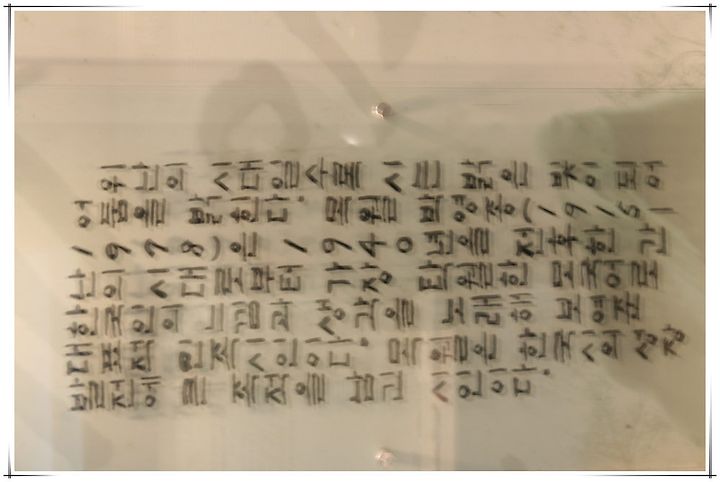 위난의 시대일수록 시는 밝은 빛이 되어
어둠을 밝힌다. 목월 박영종(1915-
1978)은 1940년을 전후한 간
난의 시대로부터 가장 탁월한 모국어로
한국인의 느낌과 생각을 노래해 보여준
대표적 민족시인이다. 목월은 한국시의 성장
발전에 큰 족적을 남긴 시인이다.